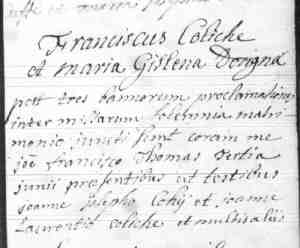 Franciscus Coliche
et maria Gislena Dorigna
post tres bannorum proclamationes
inter missarum solemnia matri
monio juncti sunt coram me
joe francisco Thomas tertia
junii presentibus ut testibus
joanne josepho Cohy et joanne
laurentio coliche et multis aliis